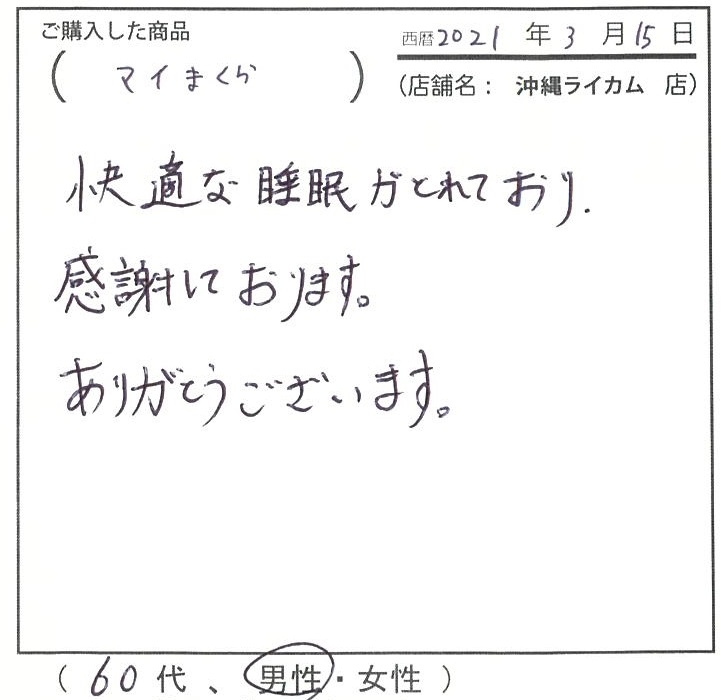 ご購入した商品
西暦2021年3月15日
(マイまくら)
(店舗名: 沖縄ライカム 店)
快適な睡眠がとれており.
感謝しております。
ありがとうございます。
(60代、男性・女性)